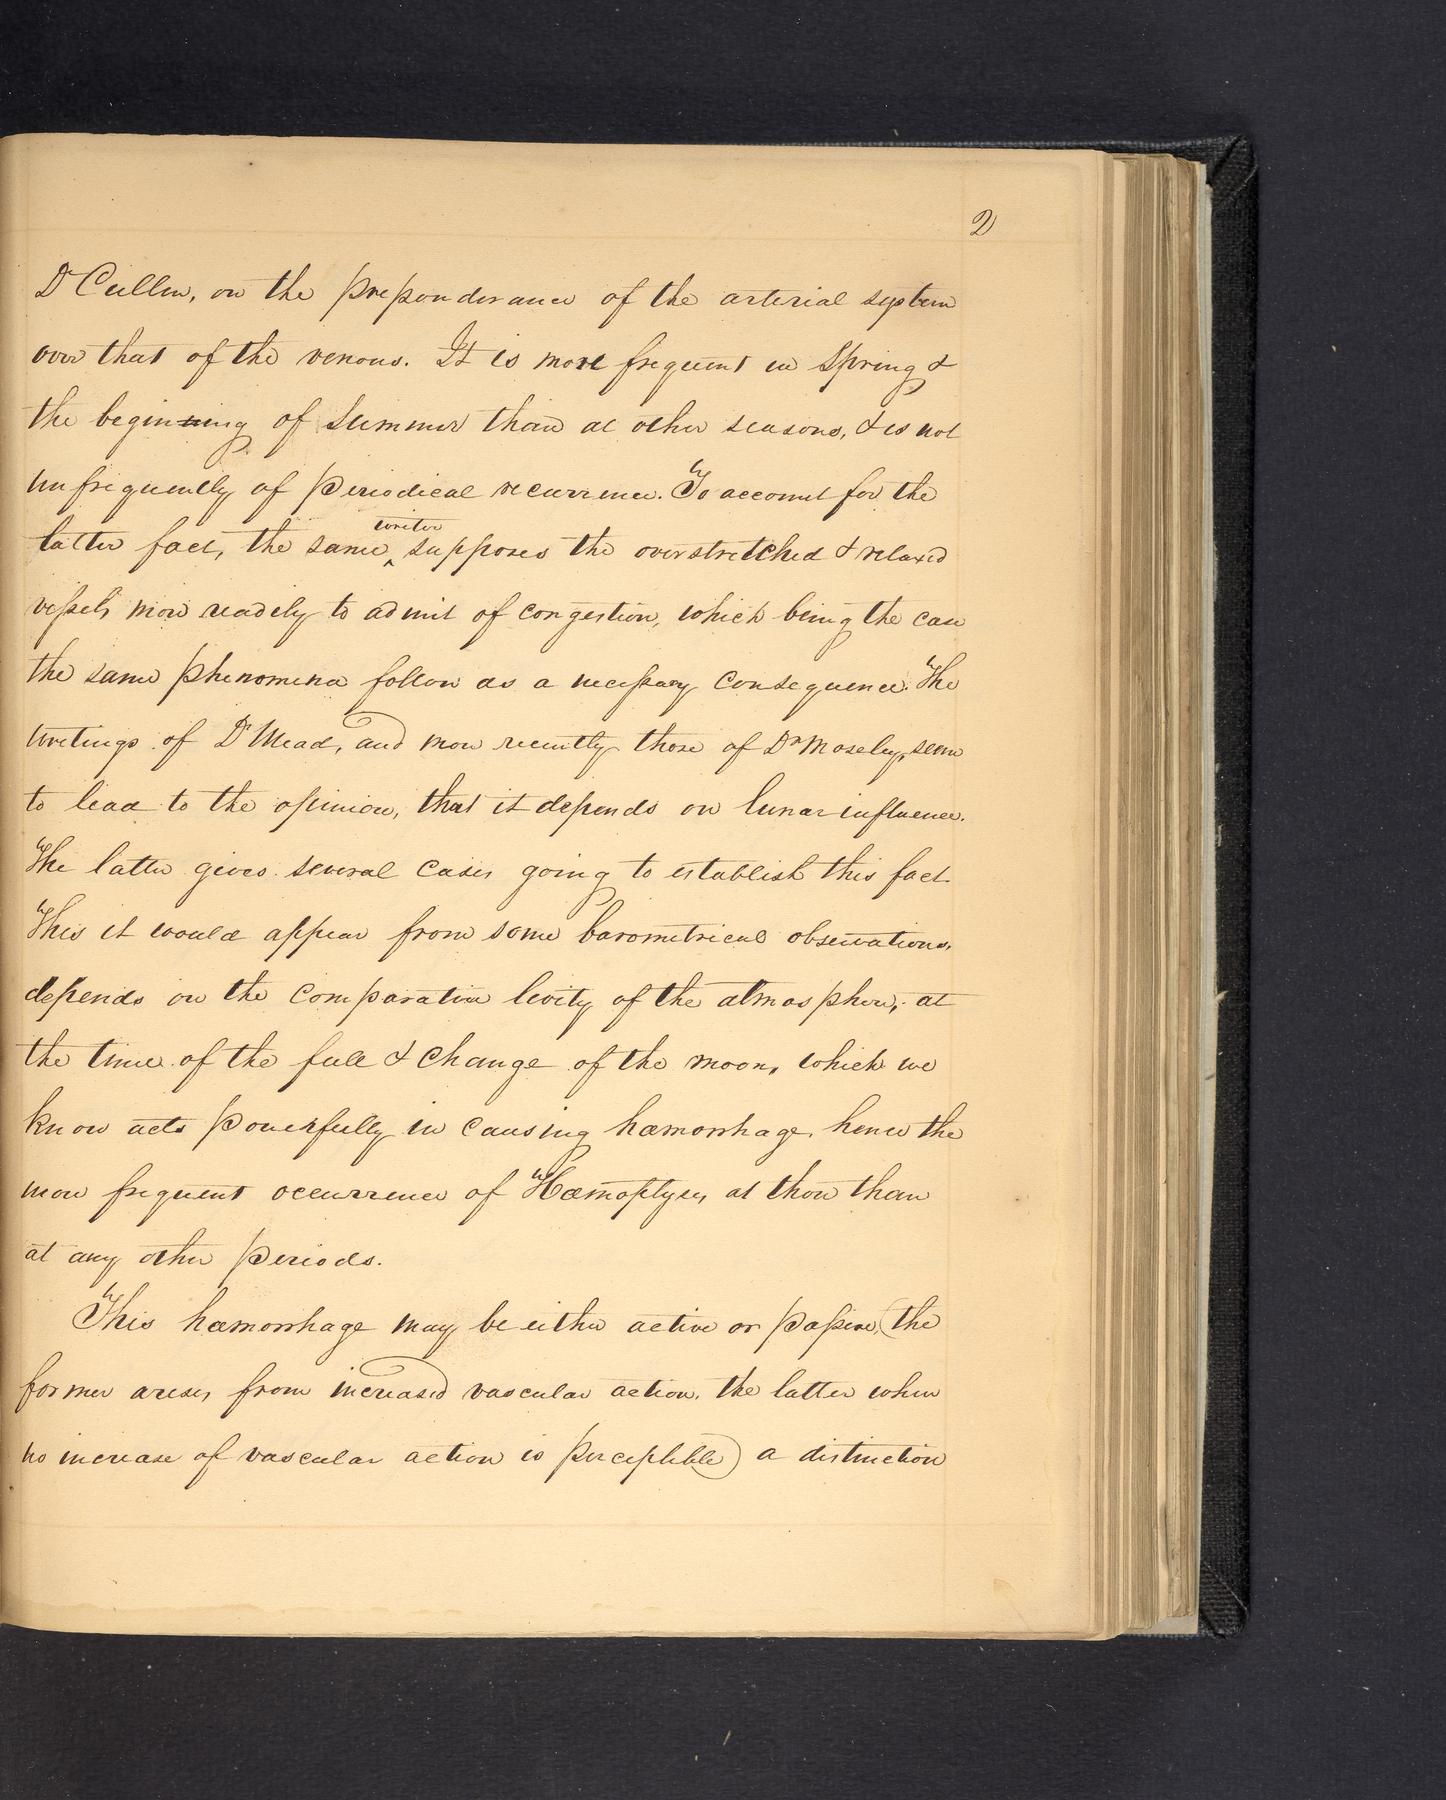 2
Dr Cullen, on the preponderance of the arterial system
over that of the venous. It is more frequent in Spring &
the beginning of Summer than at other seasons, & is not
unfrequently of periodical recurrence. To account for the
latter fact, the same writer supposes the overstretched & relaxed
vessels more readily to admit of congestion, which being the case
the same phenomena follow as a necessary consequence. The
writings of Dr Mead, and more recently those of Dr Moseley, seem
to lead to the opinion, that it depends on lunar influence.
The latter gives several cases going to establish this fact.
This it would appear from some barometrical observations,
depends on the comparative levity of the atmosphere, at
the time of the full & change of the moon, which we
know acts powerfully in causing hæmorrhage, hence the
more frequent occurrence of Hæmoptyses at those than
at any other periods.
This hæmorrhage may be either active or passive, (the
former arises from increased vascular action, the latter when
no increase of vascular action is perceptible) a distinction